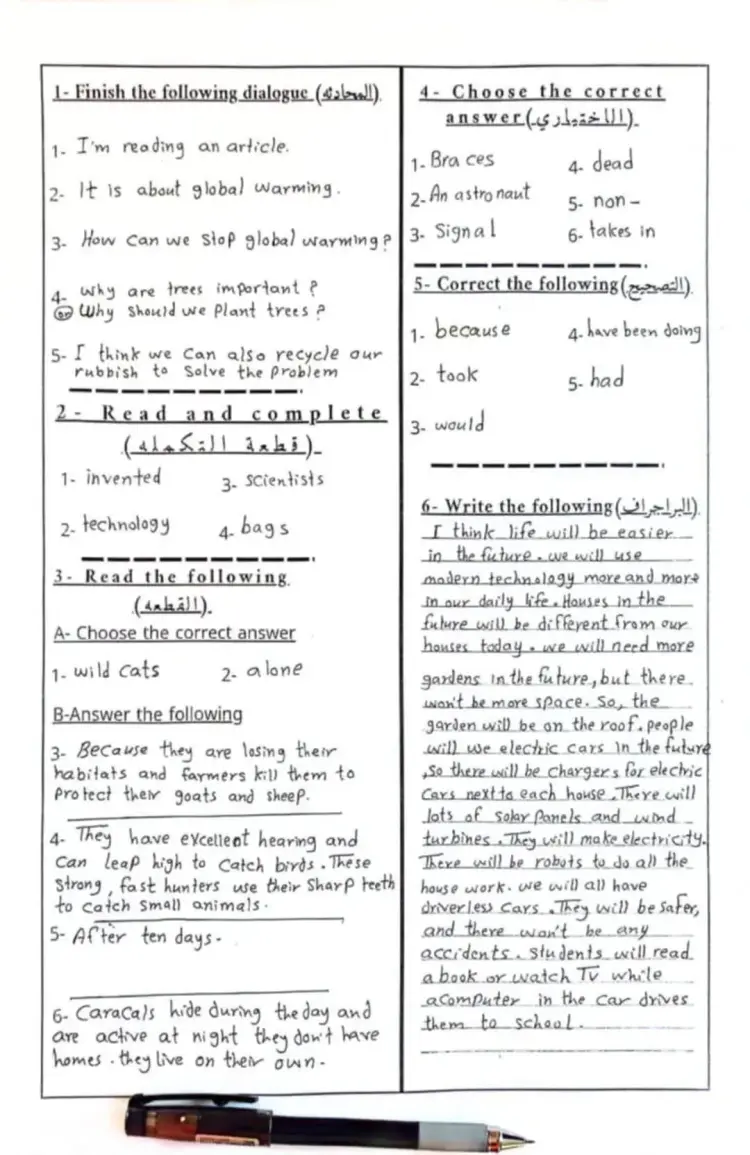 1- Finish the following dialogue (المحادثة).
1- I'm reading an article.
2- It is about global warming.
3- How can we stop global warming?
4- why are trees important?
or Why should we plant trees?
5- I think we can also recycle our
rubbish to solve the problem
2- Read and complete
(قطعة التكملة).
1- invented 3- scientists
2- technology 4- bags
3- Read the following.
(القطعة).
A- Choose the correct answer
1- wild cats 2- alone
B-Answer the following
3- Because they are losing their
habitats and farmers kill them to
protect their goats and sheep.
4- They have excellent hearing and
can leap high to catch birds. These
strong, fast hunters use their sharp teeth
to catch small animals.
5- After ten days-
6- Caracals hide during the day and
are active at night they don't have
homes. they live on their own-
4- Choose the correct
answer (الاختياري).
1- Braces 4- dead
2- An astronaut 5- non-
3- Signal 6- takes in
5- Correct the following (التصحيح).
1- because 4- have been doing
2- took 5- had
3- would
6- Write the following (البراجراف).
I think life will be easier
in the future. we will use
modern technology more and more
in our daily life. Houses in the
future will be different from our
houses today. we will need more
gardens in the future, but there
won't be more space. So, the
garden will be on the roof. people
will we electric cars in the future
,So there will be chargers for electric
cars next to each house. There will
lots of solar panels and wind
turbines. They will make electricity.
There will be robots to do all the
house work. we will all have
driverless cars. They will be safer,
and there won't be any
accidents. students will read
a book or watch TV while
a computer in the car drives
them to school.